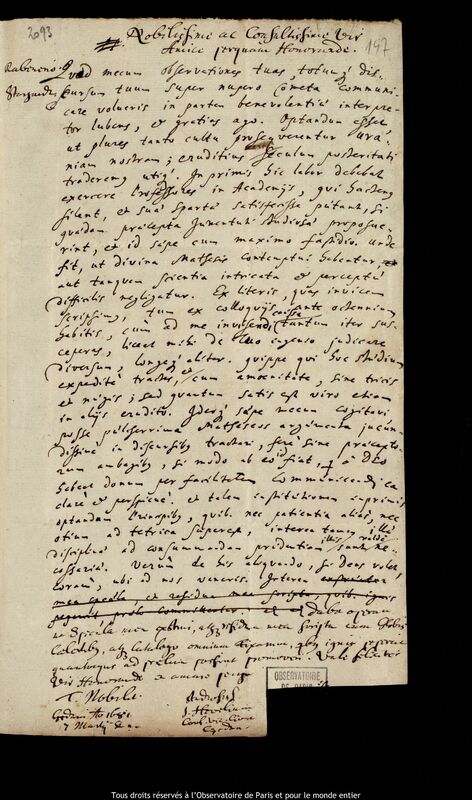 2093
147
Nobilissime ac Consultissime Vir
Amice perquam Honorande.
Quod mecum observationes tuas, totumq; dis-
cursum tuum super nupero Cometa communi-
care volueris in partem benevolentiæ interpre-
tor lubens, et gratias ago. Optandum esset
ut plures tanto cultu prosequerentur Ura-
niam nostram; eruditius seculum posteritati
traderemus utiq;. Inprimis hic labor debebat
exercere Professores in Academijs, qui hactenus
silent, et suæ Spartæ satisfecisse putant, si
quædam præcepta Juventuti studiosæ proposue-
rint, et id sæpe cum maximo fastidio. Unde
fit, ut divina Mathesis contemptui habeatur,
aut tanquam scientia intricata et perceptu
difficilis negligatur. Ex literis, quas invicem
scripsimus, tum ex colloquijs ante octennium
habitis, cum ad me invisendi causa tantum iter sus-
ceperis, licet mihi de tuo ingenio judicare
diversum, longeq; aliter. quippe qui hoc studium
expedite tractes, et cum amœnitate, sine tricis
et nugis; sed quantum satis est viro etiam
in alijs erudito. Ideoq; sæpe mecum cogitavi
posse pulcherrima Matheseos argumenta jucun-
dissime in discursibus tractari, fere sine præcepto-
rum ambagibus, si modo ab eo fiat, qui a DEO
habeat donum per facilitatem communicandi ea
clare et perspicue. et talem institutionem inprimis
optandam Principibus, quib. nec patientia alias, nec
otium ad tetrica superest, interea tamen illa
disciplina ad consummandam prudentiam illis valde sane ne-
cessaria. Verum de his aliquando, si Deus volet,
coram, ubi ad nos veneris. Interea
mea specula, et residua mea scripta, quib. ignis
pepercit, prælo committantur.
Dabo operam
ut specula mea extrui, atq; residua mea scripta cum Globis
Cœlestib, atq; Catalogo omnium Fixarum, quib ignis pepercit
quantocyus ad prælum possint promoveri. Vale feliciter
Vir Honorande et amare perge
T. Nobilit.
Gedani Ao 1681
7 Martij
Studiosiss.
J. Hevelium
Cons. vet. Civit.
Gedan.
OBSERVATOIRE
DE PARIS
Tous droits réservés à l'Observatoire de Paris et pour le monde entier